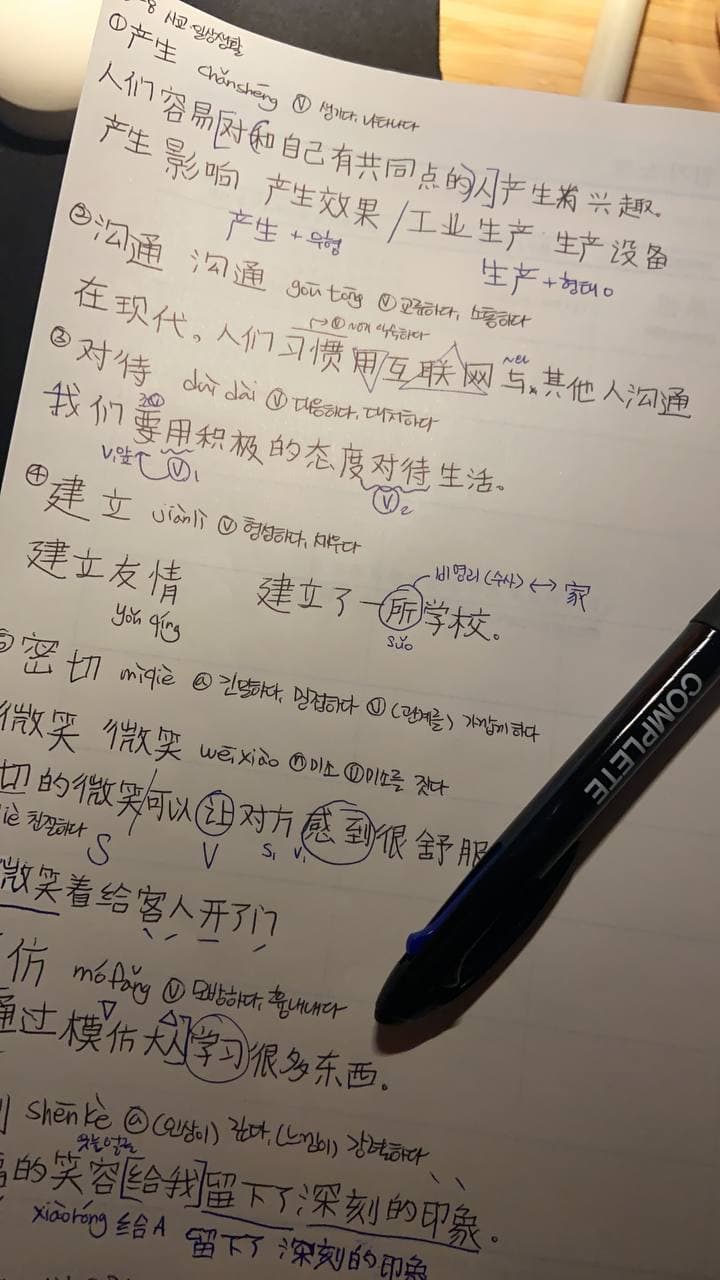 -8 사교·일상생활
① 产生 chǎnshēng ⓥ 생기다, 나타나다
人们容易[对(和自己有共同点的)人]产生有兴趣。
产生影响 产生效果 / 工业生产 生产设备
产生 + 무형 生产 + 형태 o
② 沟通 沟通 gōu tōng ⓥ 교류하다, 소통하다
在现代。人们习惯用互联网与其他人沟通
③ 对待 duì dài ⓥ 대응하다, 대처하다
我们要用积极的态度对待生活。
V₁앞 ⓥ₁ ⓥ₂
④ 建立 jiànlì ⓥ 형성하다, 세우다
비영리(수사) ↔ 家
建立友情 建立了一所学校。
yǒu qíng suǒ
密切 mìqiè ⓐ 긴밀하다, 밀접하다 ⓥ (관계를) 가깝게 하다
微笑 微笑 wēixiào ⓝ 미소 ⓥ 미소를 짓다
切的微笑/可以让对方感到很舒服
iè 친절하다 S V S₁ V₁
微笑着给客人开了门
仿 mófǎng ⓥ 모방하다, 흉내내다
通过模仿大人]学习很多东西。
shēnkè ⓐ (인상이) 깊다, (느낌이) 강렬하다
웃는얼굴
的笑容[给我]留下了深刻的印象。
xiàoróng 给A 留下了深刻的印象
COMPLETE